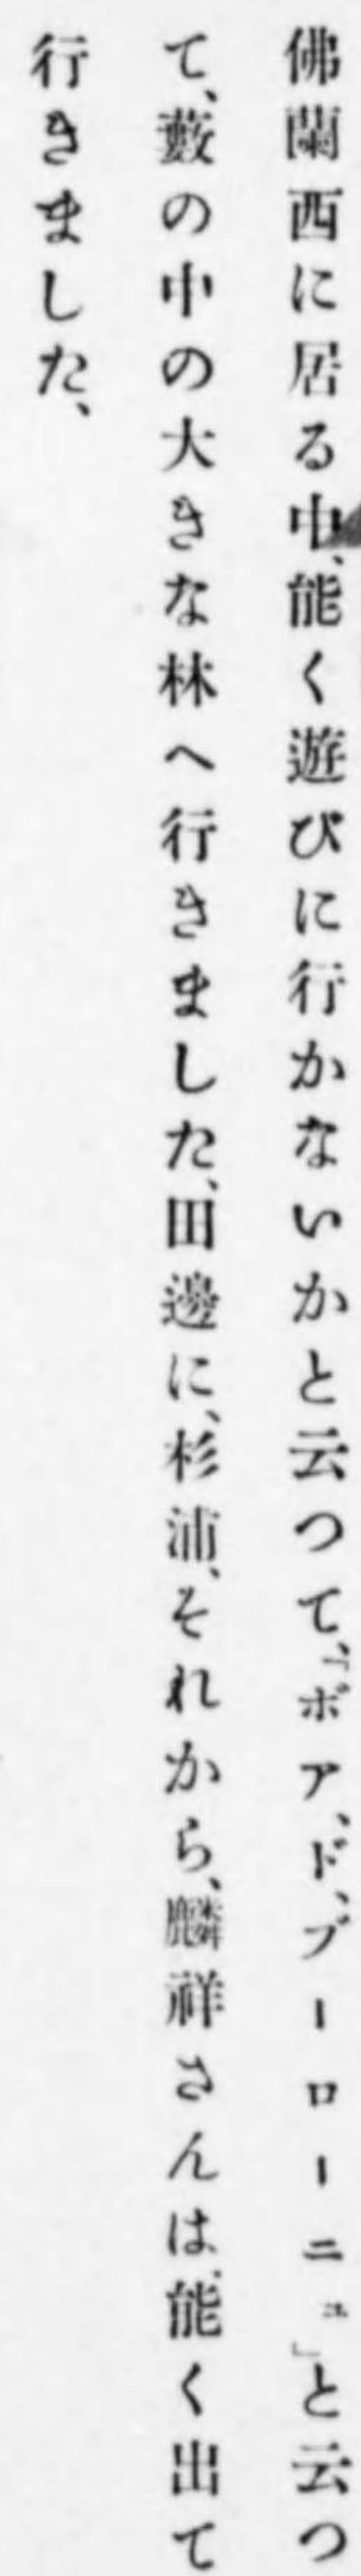 佛蘭西に居る中、能く遊びに行かないかと云つて、「ボア、ド、ブーローニュ」と云つ
て、藪の中の大きな林へ行きました、田邊に、杉浦、それから、麟祥さんは、能く出て
行きました、